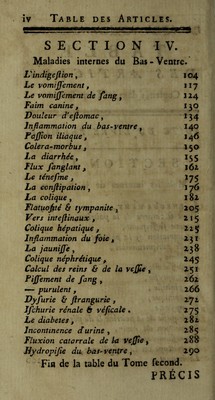 iv TABLE DES ARTICLES.
SECTION IV.
Maladies internes du Bas-Ventre.
L'indigestion, 104
Le vomissement, 117
Le vomissement de sang, 124
Faim canine, 130
Douleur d'estomac, 134
Inflammation du bas-ventre, 140
Passion iliaque, 146
Colera-morbus, 150
La diarrhée, 155
Flux sanglant, 162
Le ténesme, 175
La constipation, 176
La colique, 182
Flatuosité & tympanite, 205
Vers intestinaux, 215
Colique hépatique, 225
Inflammation du foie, 231
La jaunisse, 238
Colique néphrétique, 245
Calcul des reins & de la vessie, 251
Pissement de sang, 262
— purulent, 266
Dysurie & strangurie, 272
Ischurie rénale & vésicale. 275
Le diabetes, 282
Incontinence d'urine, 285
Fluxion catarrale de la vessie, 288
Hydropisie du bas-ventre, 290
Fin de la table du Tome second.
PRÉCIS